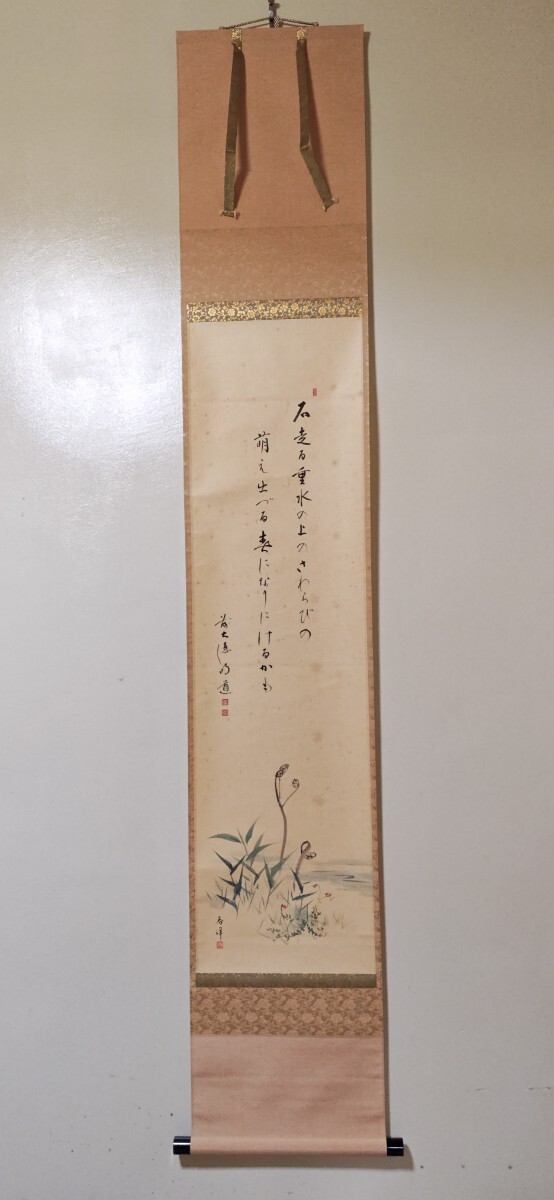 石走る垂水の上のさわらびの
萌え出づる春になりにけるかも
前大徳